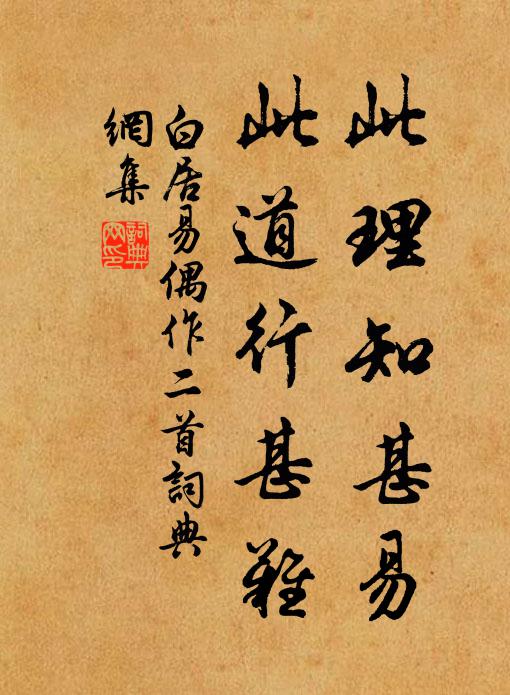 此理知甚易
此道行甚難
白居易偶作二首詞典
網集
詞典
网印